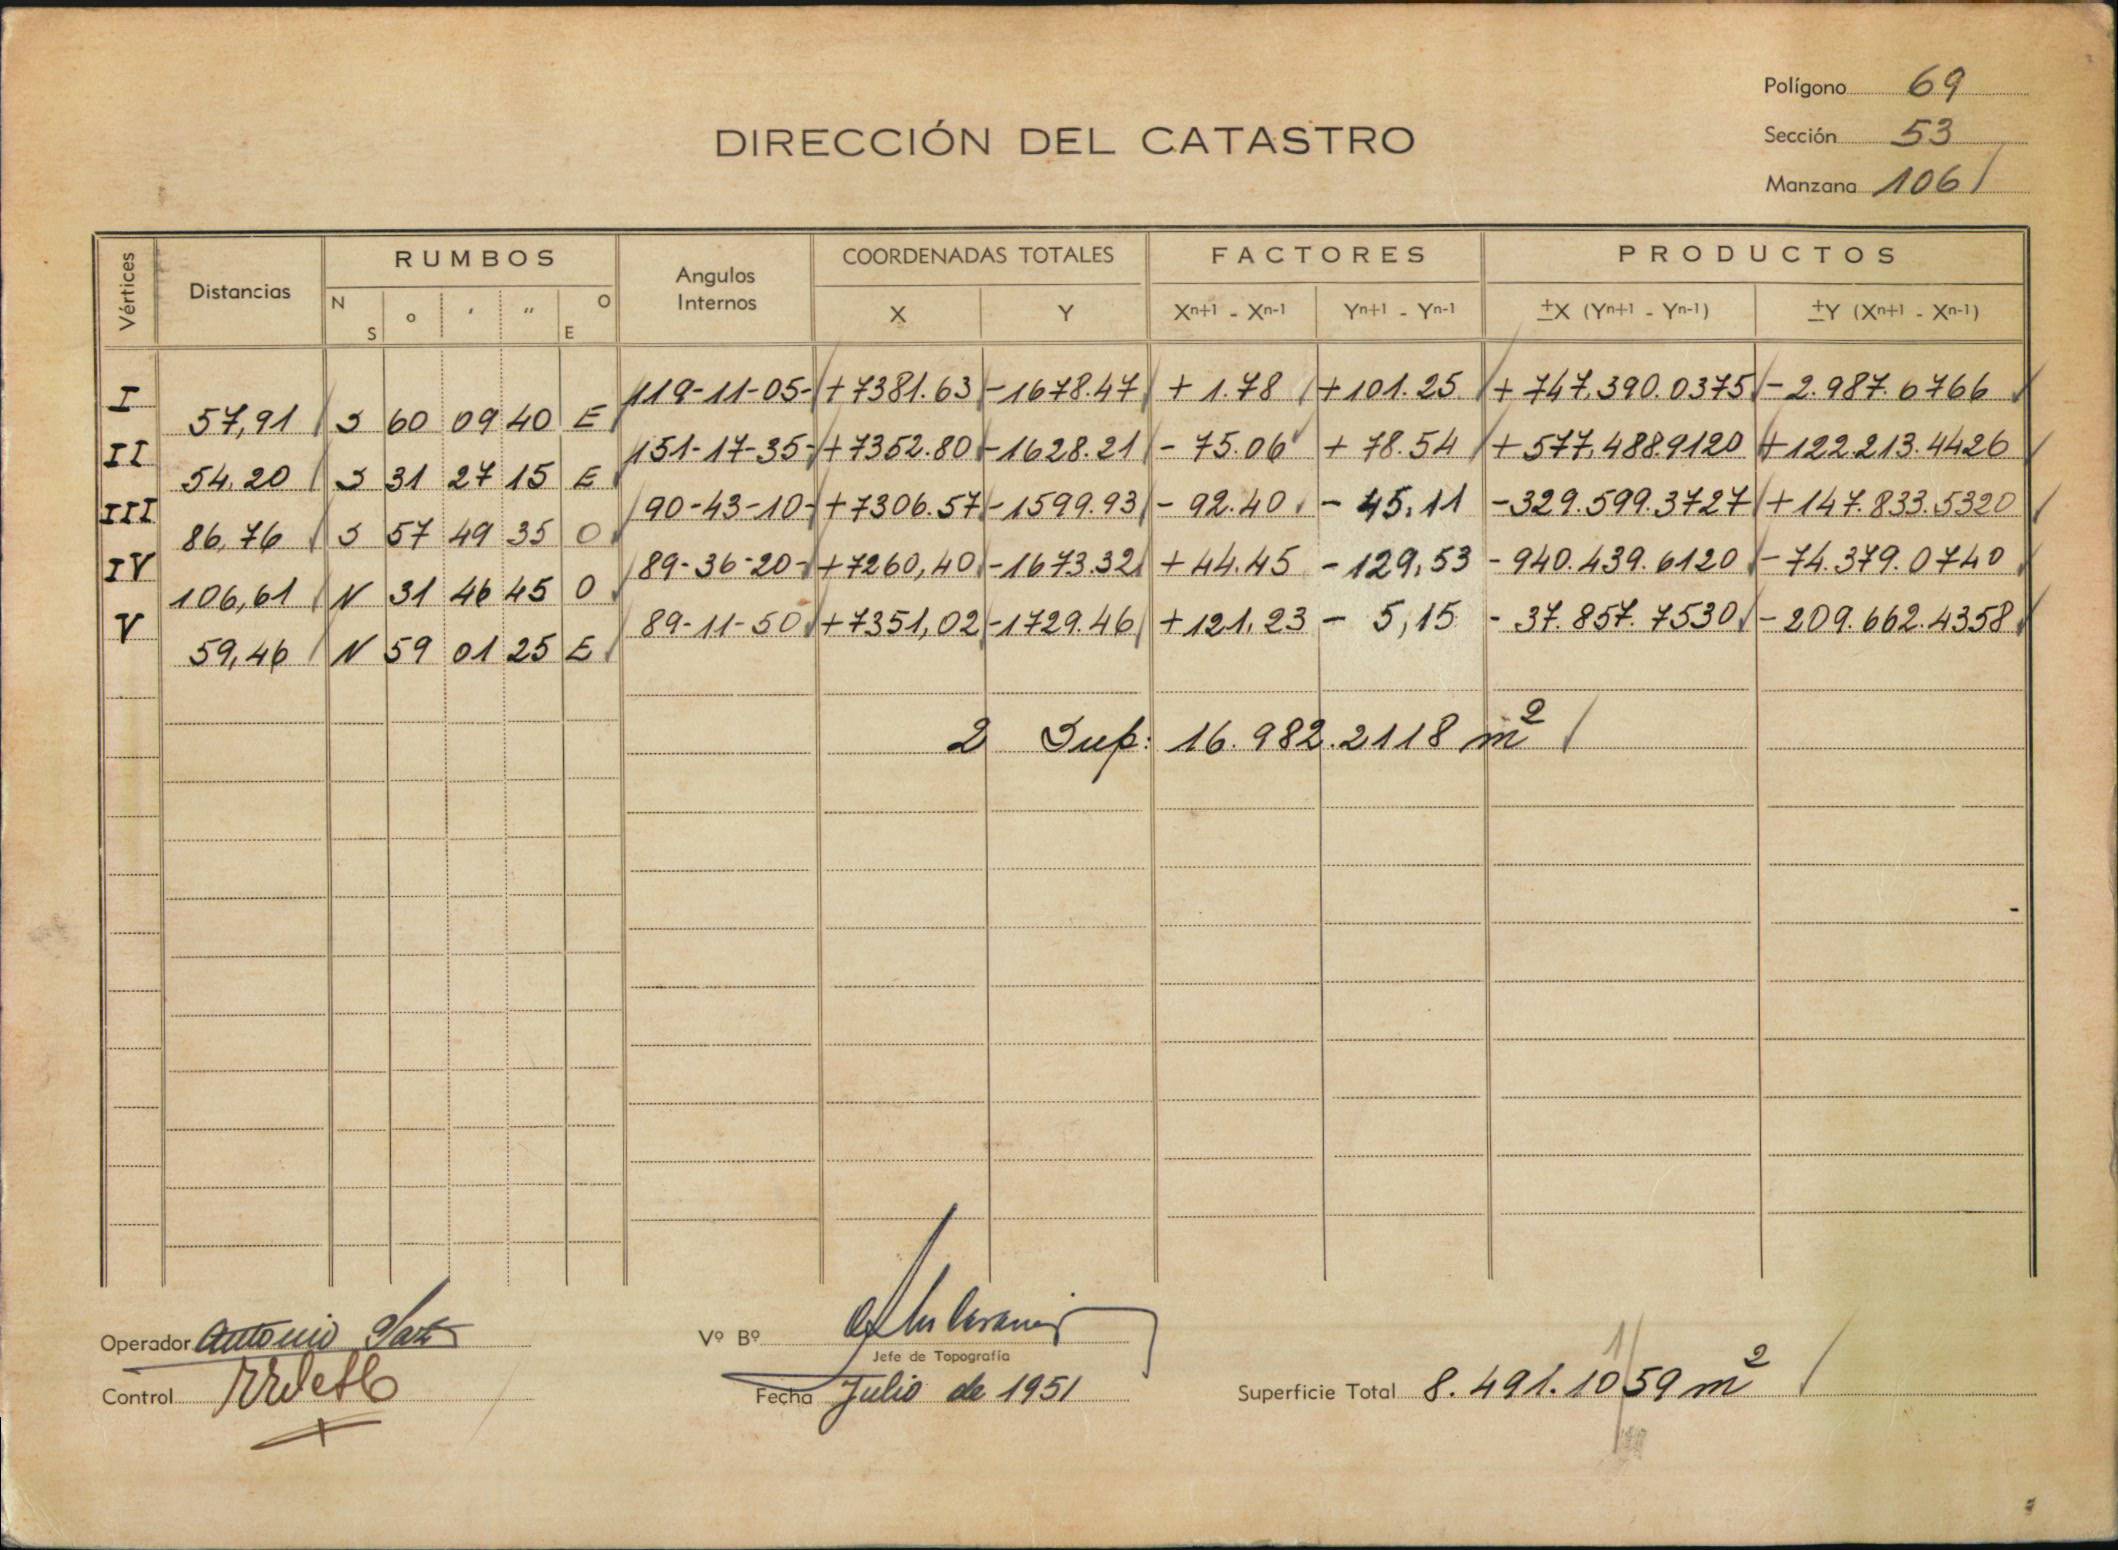 Polígono 69
DIRECCIÓN DEL CATASTRO
Sección 53
Manzana 106
Vértices Distancias RUMBOS Angulos Internos COORDENADAS TOTALES FACTORES PRODUCTOS
N S o ' " O E X Y Xn+1 - Xn-1 Yn+1 - Yn-1 ±X (Yn+1 - Yn-1) ±Y (Xn+1 - Xn-1)
I 119-11-05 +7381.63 -1678.47 + 1.78 +101.25 + 747.390.0375 - 2.987.6766
57,91 S 60 09 40 E
II 151-17-35 +7352.80 -1628.21 - 75.06 + 78.54 +577.488.9120 +122.213.4426
54.20 S 31 27 15 E
III 90-43-10 +7306.57 -1599.93 - 92.40 - 45.11 -329.599.3727 +147.833.5320
86,76 S 57 49 35 O
IV 89-36-20 +7260,40 -1673.32 +44.45 -129.53 -940.439.6120 -74.379.0740
106,61 N 31 46 45 O
V 89-11-50 +7351,02 -1729.46 +121.23 - 5,15 - 37.857.7530 -209.662.4358
59,46 N 59 01 25 E
2 Sup: 16.982.2118 m²
Operador Antonio
Vº Bº
Jefe de Topografía
Control
Fecha Julio de 1951
Superficie Total 8.491.1059 m²